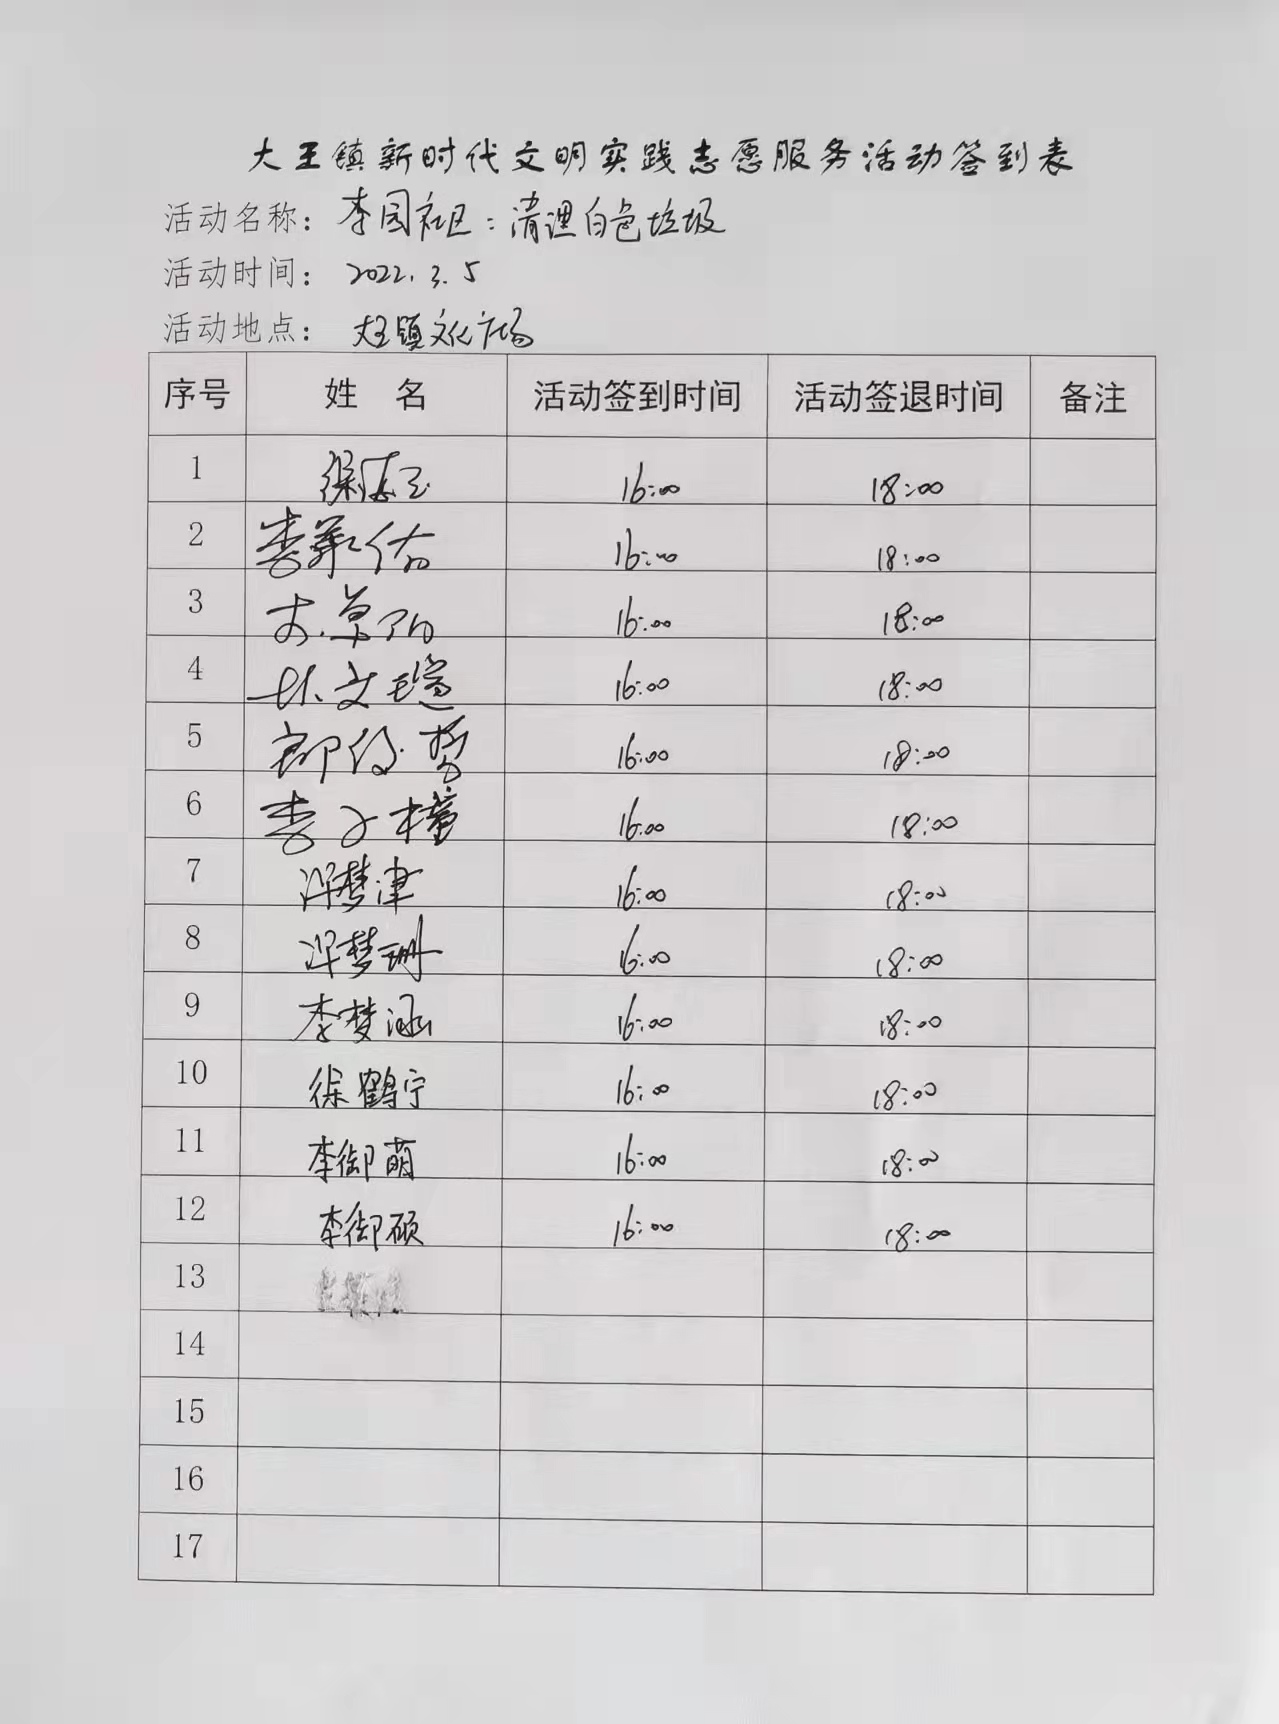 大王镇新时代文明实践志愿服务活动签到表
活动名称：李园社区：清理白色垃圾
活动时间：2022.3.5
活动地点：大王镇文化广场
序号 姓 名 活动签到时间 活动签退时间 备注
1 16:00 18:00
2 李承佑 16:00 18:00
3 16:00 18:00
4 文瑄 16:00 18:00
5 16:00 18:00
6 李子橦 16:00 18:00
7 冯梦津 16:00 18:00
8 冯梦珊 16:00 18:00
9 李梦涵 16:00 18:00
10 徐鹤宁 16:00 18:00
11 李御萌 16:00 18:00
12 李御硕 16:00 18:00
13
14
15
16
17